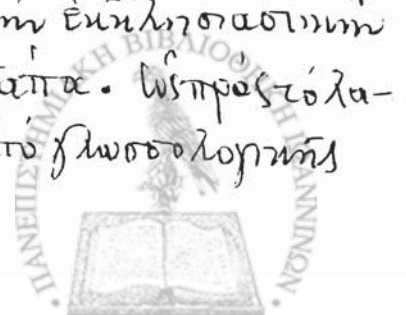 ἐκκλησιαστικὴν
ὡς πρὸς τὸ λα-
γλωσσολογικῆς
ΠΑΝΕΠΙΣΤΗΜΙΑΚΗ ΒΙΒΛΙΟΘΗΚΗ ΙΩΑΝΝΙΝΩΝ